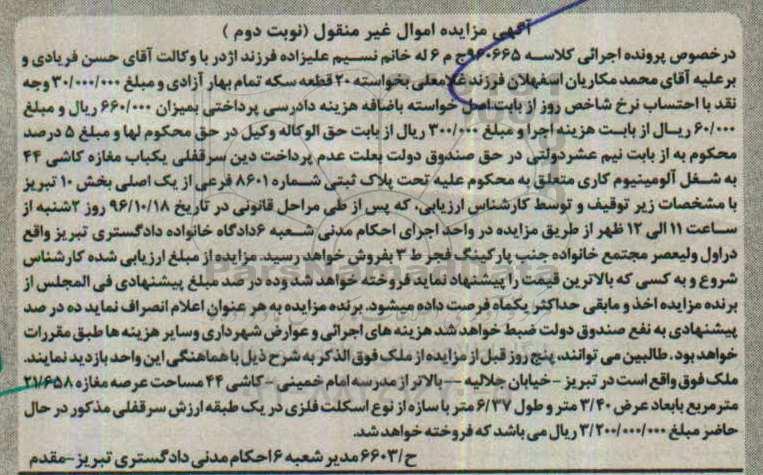 آگهی مزایده اموال غیر منقول (نوبت دوم )
درخصوص پرونده اجرائی کلاسه ۹۶۰۶۶۵ج م ۶ له خانم نسیم علیزاده فرزند اژدر با وکالت آقای حسن فریادی و
برعلیه آقای محمد مکاریان اسفهلان فرزند غلامعلی بخواسته ۲۰ قطعه سکه تمام بهار آزادی و مبلغ ۳۰/۰۰۰/۰۰۰ وجه
نقد با احتساب نرخ شاخص روز از بابت اصل خواسته باضافه هزینه دادرسی پرداختی بمیزان ۶۶۰/۰۰۰ ریال و مبلغ
۶۰/۰۰۰ ریال از بابت هزینه اجرا و مبلغ ۳۰۰/۰۰۰ ریال از بابت حق الوکاله وکیل در حق محکوم لها و مبلغ ۵ درصد
محکوم به از بابت نیم عشر دولتی در حق صندوق دولت بعلت عدم پرداخت دین سرقفلی یکباب مغازه کاشی ۴۴
به شغل آلومینیوم کاری متعلق به محکوم علیه تحت پلاک ثبتی شماره ۸۶۰۱ فرعی از یک اصلی بخش ۱۰ تبریز
با مشخصات زیر توقیف و توسط کارشناس ارزیابی، که پس از طی مراحل قانونی در تاریخ ۹۶/۱۰/۱۸ روز ۲شنبه از
ساعت ۱۱ الی ۱۲ ظهر از طریق مزایده در واحد اجرای احکام مدنی شعبه ۶دادگاه خانواده دادگستری تبریز واقع
دراول ولیعصر مجتمع خانواده جنب پارکینگ فجر ط ۳ بفروش خواهد رسید. مزایده از مبلغ ارزیابی شده کارشناس
شروع و به کسی که بالاترین قیمت را پیشنهاد نماید فروخته خواهد شد وده در صد مبلغ پیشنهادی فی المجلس از
برنده مزایده اخذ و مابقی حداکثر یکماه فرصت داده میشود. برنده مزایده به هر عنوان اعلام انصراف نماید ده در صد
پیشنهادی به نفع صندوق دولت ضبط خواهد شد هزینه های اجرائی و عوارض شهرداری وسایر هزینه ها طبق مقررات
خواهد بود. طالبین می توانند، پنج روز قبل از مزایده از ملک فوق الذکر به شرح ذیل با هماهنگی این واحد بازدید نمایند.
ملک فوق واقع است در تبریز – خیابان جلالیه –– بالاتر از مدرسه امام خمینی – کاشی ۴۴ مساحت عرصه مغازه ۲۱/۶۵۸
مترمربع بابعاد عرض ۳/۴۰ متر و طول ۶/۳۷ متر با سازه از نوع اسکلت فلزی در یک طبقه ارزش سرقفلی مذکور در حال
حاضر مبلغ ۳/۲۰۰/۰۰۰/۰۰۰ ریال می باشد که فروخته خواهد شد.
ح/۶۶۰۳ مدیر شعبه ۶ احکام مدنی دادگستری تبریز –مقدم
ParsNamadData